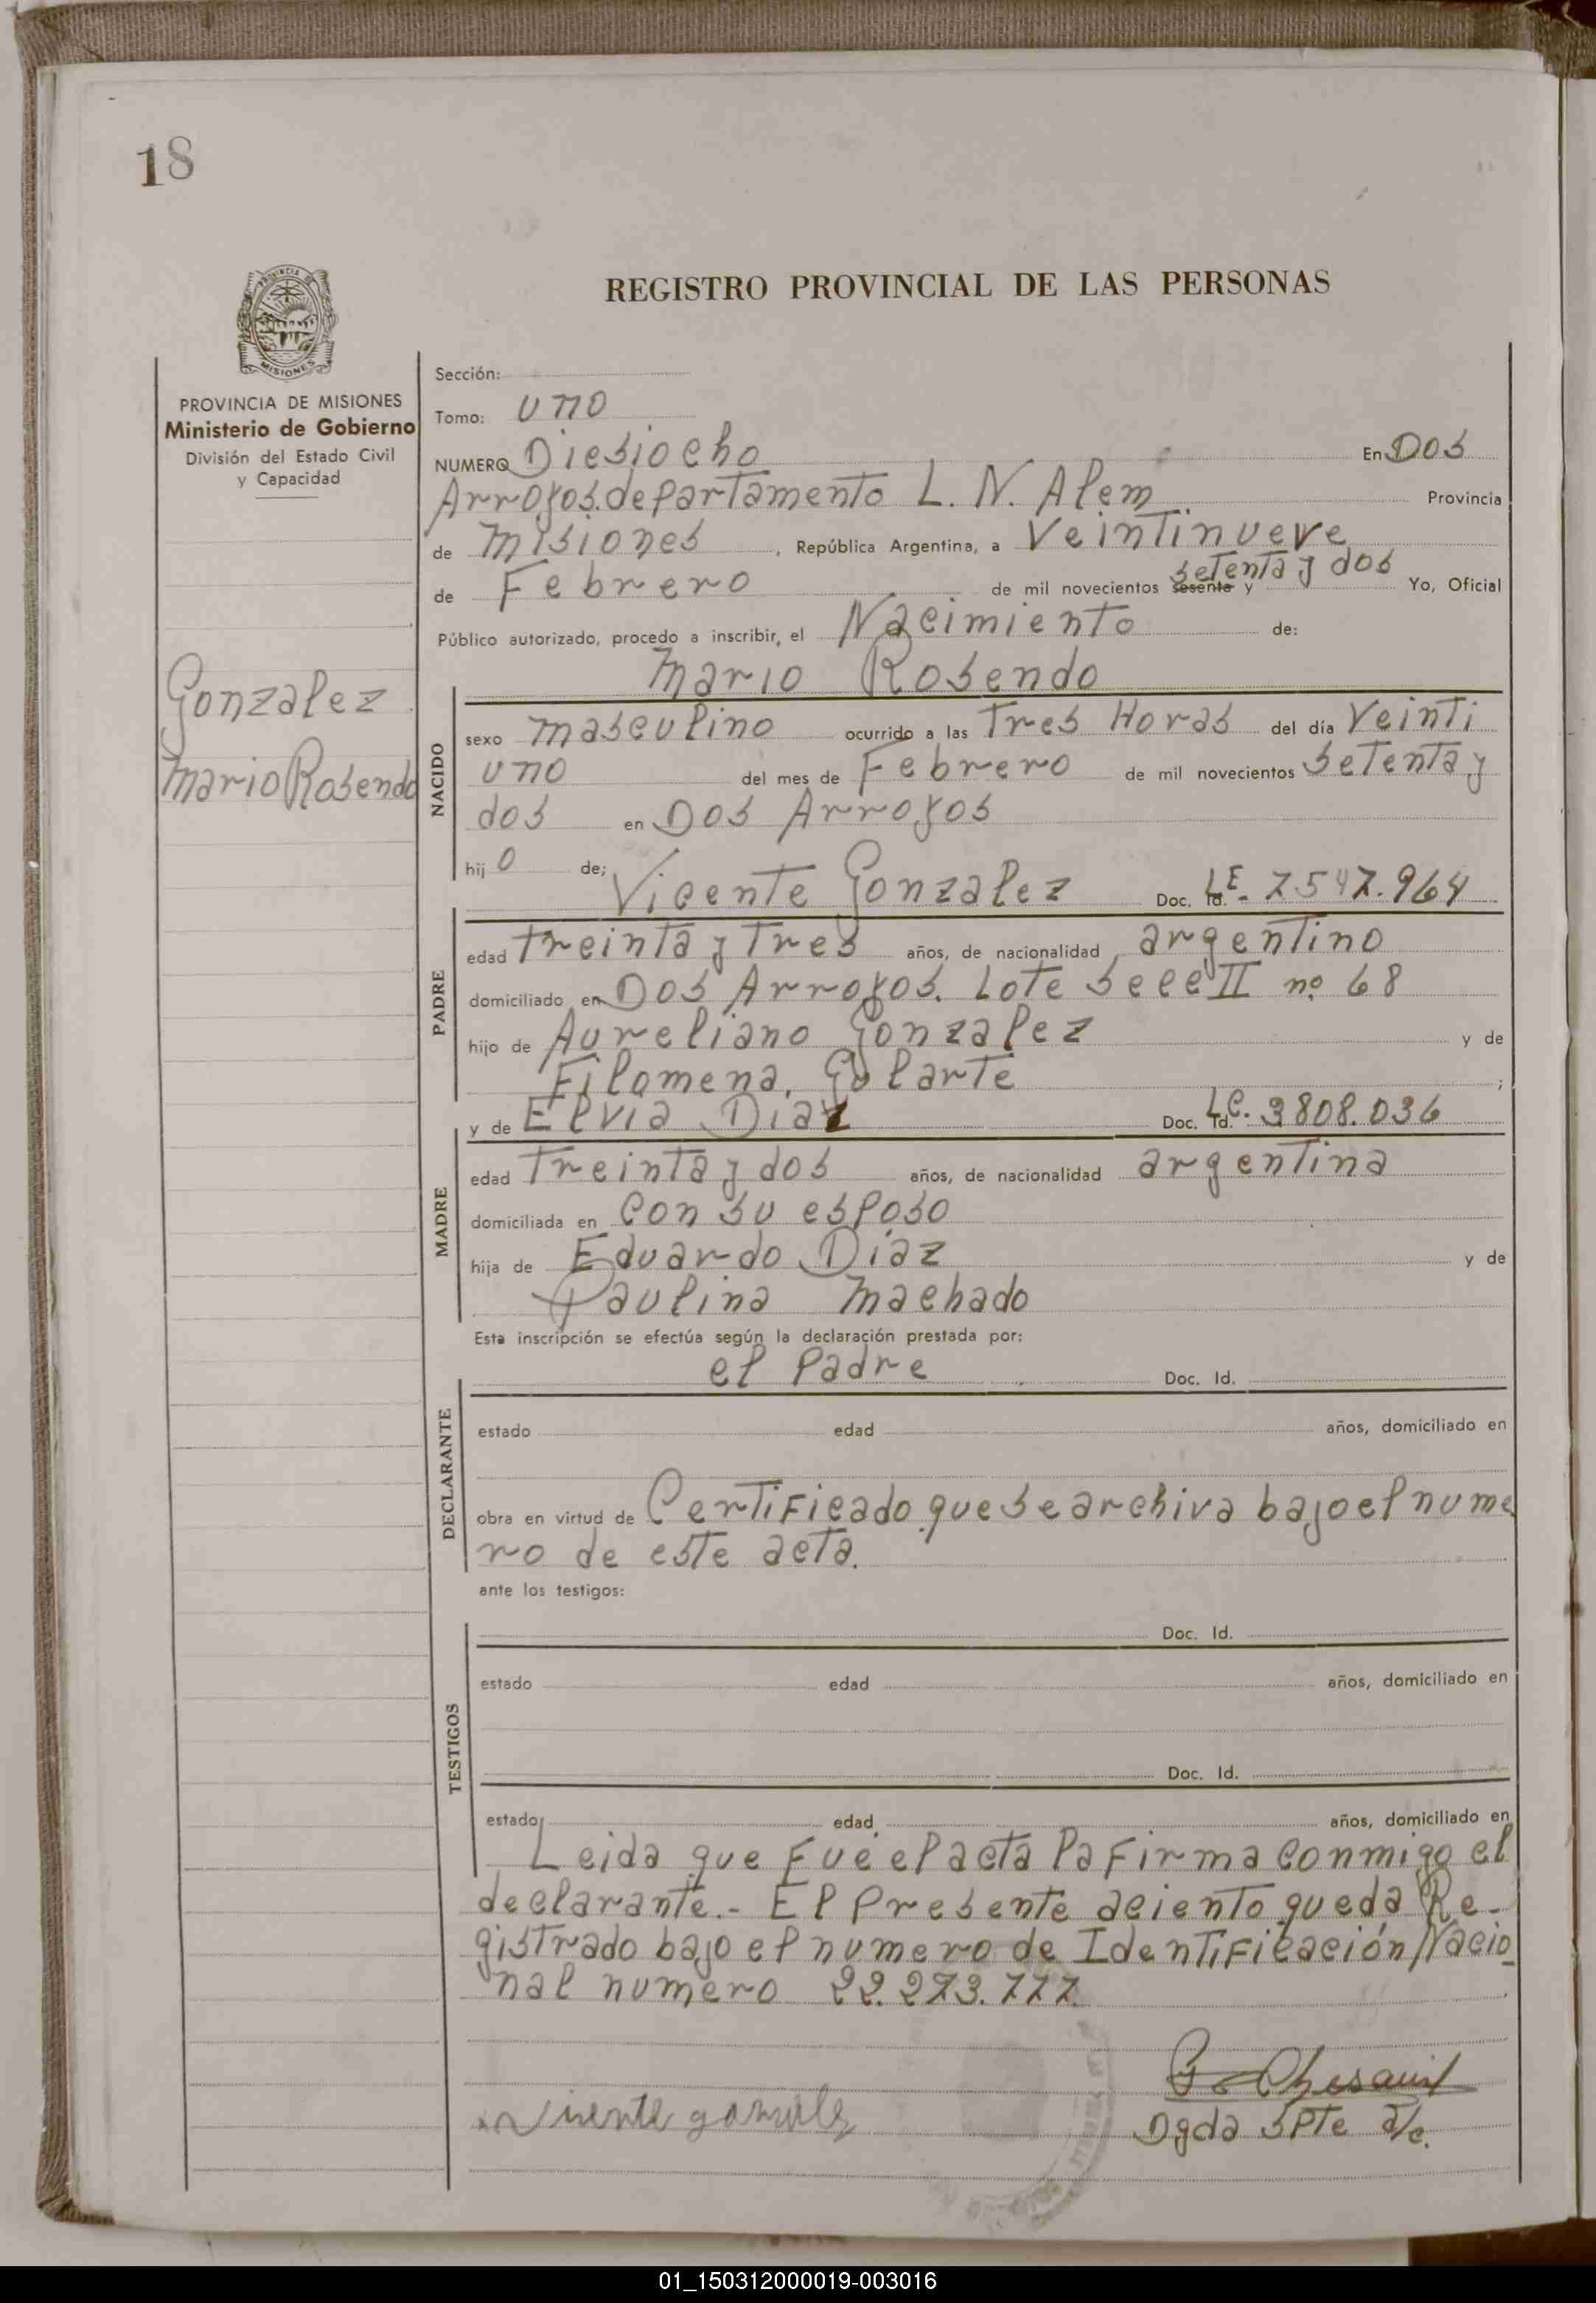 18
REGISTRO PROVINCIAL DE LAS PERSONAS
PROVINCIA DE MISIONES
Ministerio de Gobierno
División del Estado Civil
y Capacidad
Gonzalez
Mario Rosendo
Sección:
Tomo: uno
NUMERO Diesiocho En Dos
Arroyos. departamento L. N. Alem Provincia
de Misiones, República Argentina, a Veintinueve
de Febrero de mil novecientos sesenta y setenta y dos Yo, Oficial
Público autorizado, procedo a inscribir, el Nacimiento de:
Mario Rosendo
NACIDO
sexo masculino ocurrido a las Tres Horas del día Veinti
uno del mes de Febrero de mil novecientos setenta y
dos en Dos Arroyos
hij o de; Vicente Gonzalez Doc. Id. LE- 7547.964
PADRE
edad treinta y Tres años, de nacionalidad argentino
domiciliado en Dos Arroyos. Lote secc II nº 68
hijo de Aureliano Gonzalez y de
Filomena. Gularte ;
y de Elvia Diaz Doc. Id. LC. 3808.036
MADRE
edad Treinta y dos años, de nacionalidad argentina
domiciliada en con su esposo
hija de Eduardo Díaz y de
Paulina Machado
Esta inscripción se efectúa según la declaración prestada por:
el Padre Doc. Id.
DECLARANTE
estado edad años, domiciliado en
obra en virtud de Certificado que se archiva bajo el nume
ro de este acta.
ante los testigos:
Doc. Id.
TESTIGOS
estado edad años, domiciliado en
Doc. Id.
estado edad años, domiciliado en
Leida que Fue el acta la Firma conmigo el
declarante.- El Presente aciento queda Re-
gistrado bajo el numero de Identificación Nacio_
nal numero 22.273.777.
Dgda SPTe a/c.
01_150312000019-003016